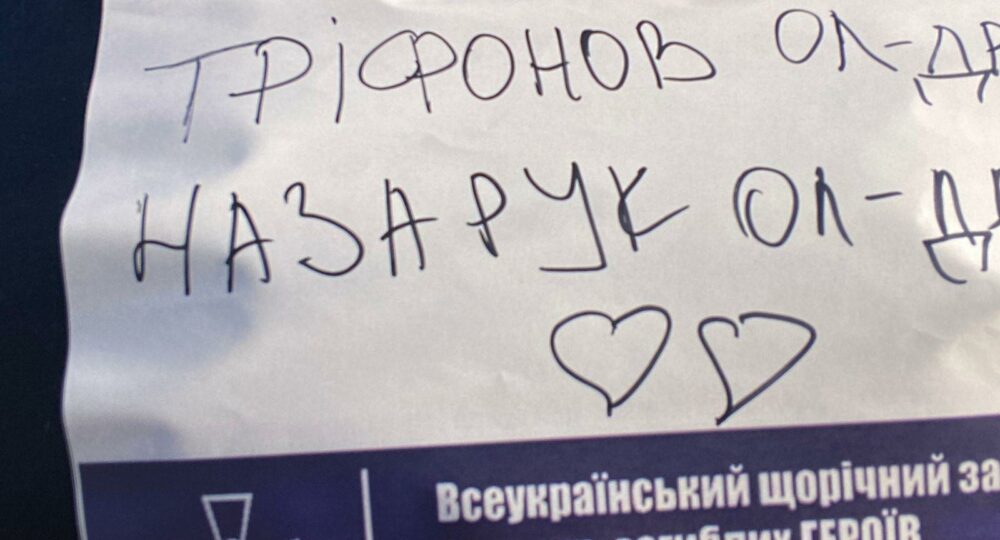 ТРІФОНОВ ОЛ-ДР
НАЗАРУК ОЛ-Д
Всеукраїнський щорічний за
загиблих ГЕРОЇВ